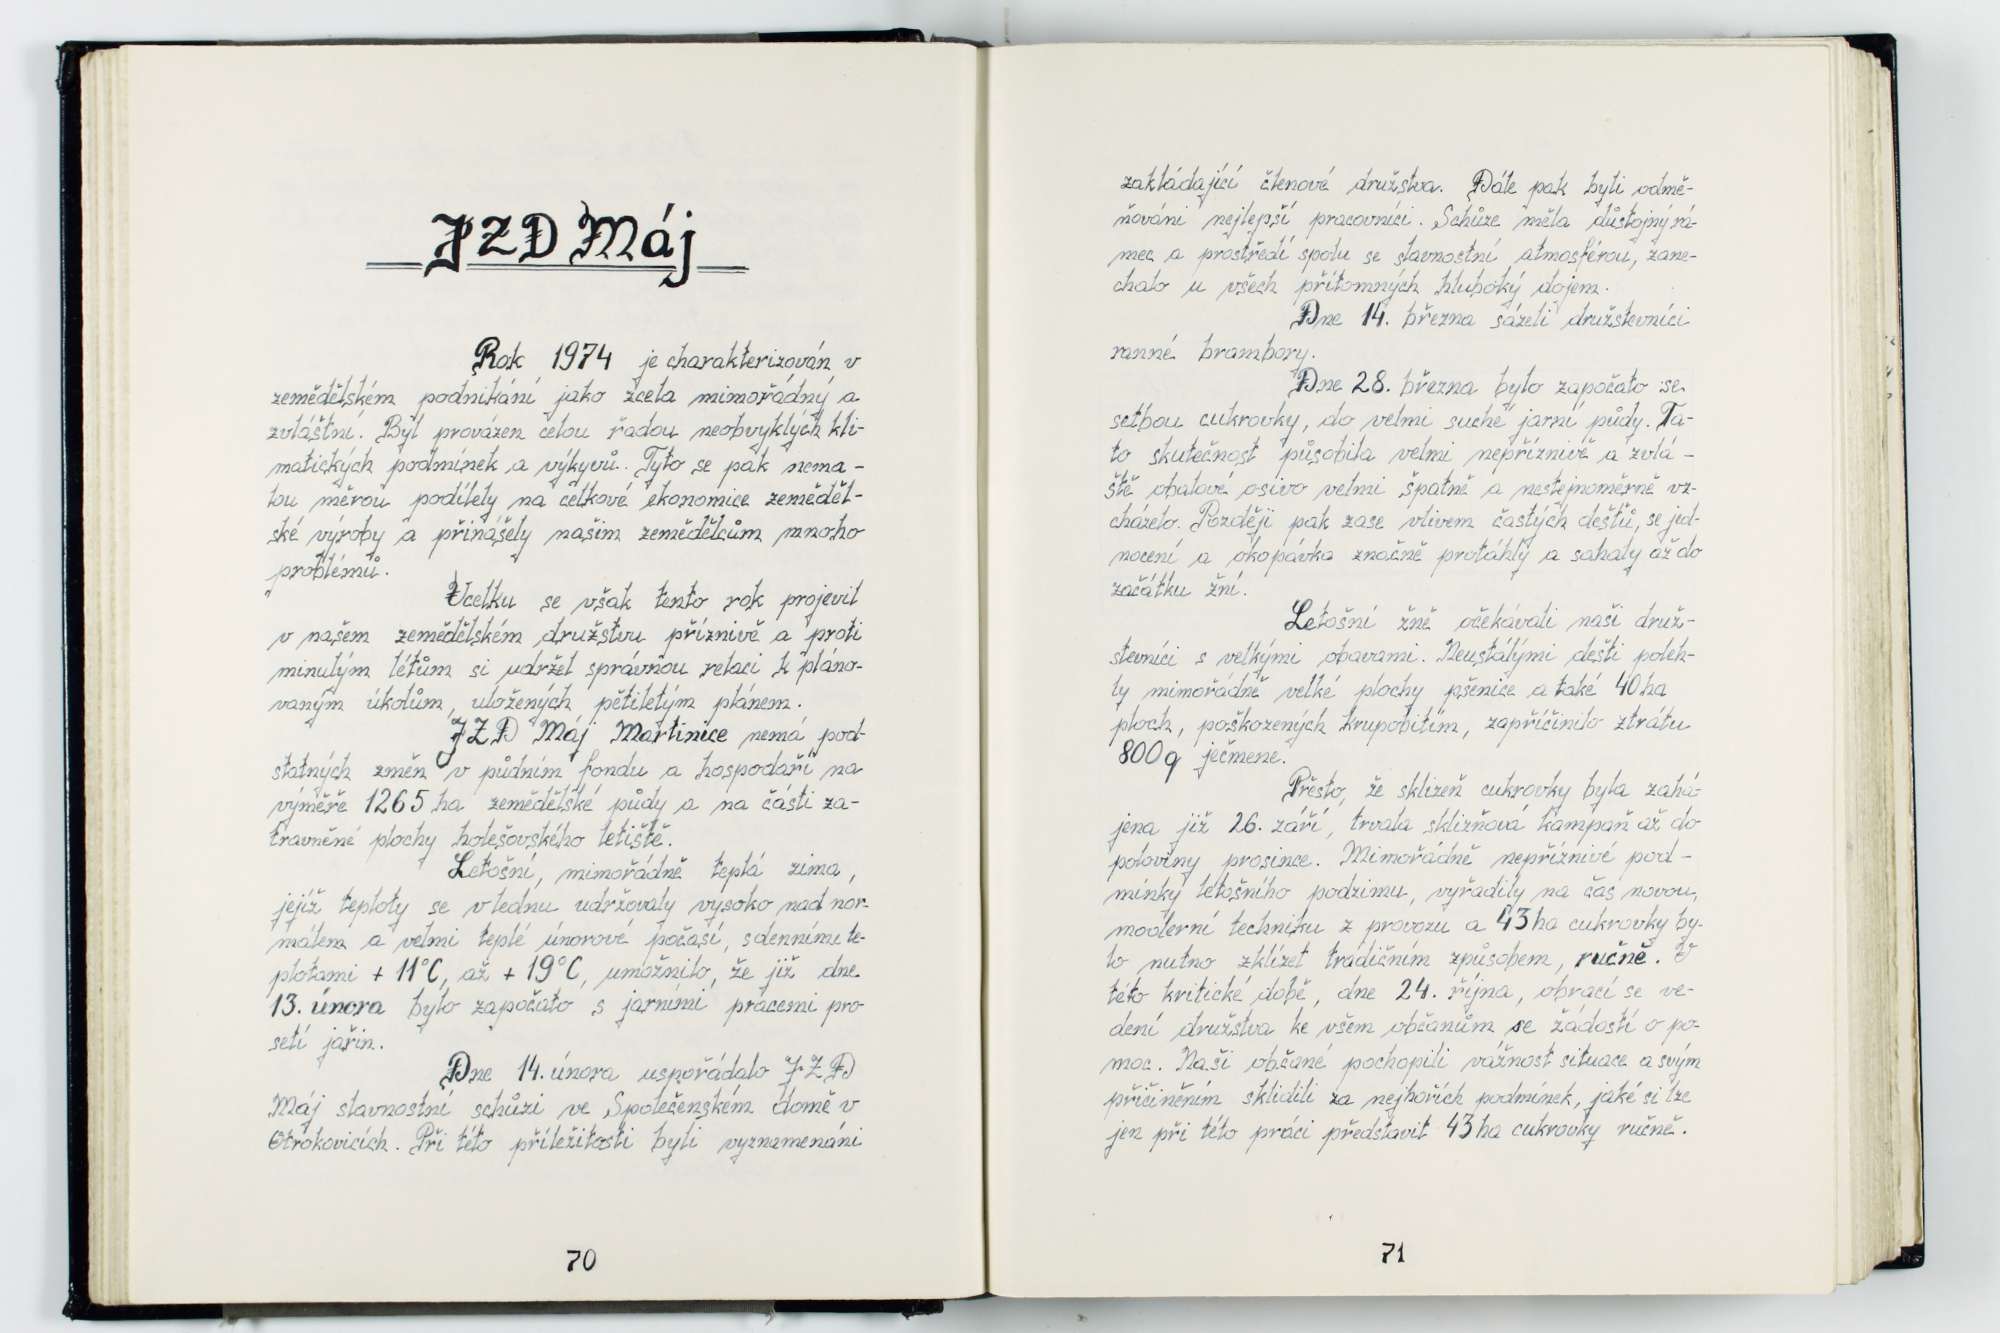 JZD Máj
Rok 1974 je charakterizován v
zemědělském podnikání jako zcela mimořádný a
zvláštní. Byl provázen celou řadou neobvyklých kli-
matických podmínek a výkyvů. Tyto se pak nema-
lou měrou podílely na celkové ekonomice zeměděl-
ské výroby a přinášely našim zemědělcům mnoho
problémů.
Vcelku se však tento rok projevil
v našem zemědělském družstvu příznivě a proti
minulým létům si udržel správnou relaci k pláno-
vaným úkolům, uložených pětiletým plánem.
JZD Máj Martinice nemá pod-
statných změn v půdním fondu a hospodaří na
výměře 1265 ha zemědělské půdy a na části za-
travněné plochy holešovského letiště.
Letošní, mimořádně teplá zima,
jejíž teploty se v lednu udržovaly vysoko nad nor-
málem a velmi teplé únorové počasí, s denními te-
plotami + 11°C, až + 19°C, umožnilo, že již dne
13. února bylo započato s jarními pracemi pro
setí jařin.
Dne 14. února uspořádalo JZD
Máj slavnostní schůzi ve Společenském domě v
Otrokovicích. Při této příležitosti byli vyznamenáni
70
zakládající členové družstva. Dále pak byli odmě-
ňováni nejlepší pracovníci. Schůze měla důstojný rá-
mec a prostředí spolu se slavnostní atmosférou, zane-
chalo u všech přítomných hluboký dojem.
Dne 14. března sázeli družstevníci
ranné brambory.
Dne 28. března bylo započato se
setbou cukrovky, do velmi suché jarní půdy. Ta-
to skutečnost působila velmi nepříznivě a zvlá-
ště obalové osivo velmi špatně a nestejnoměrně vz-
cházelo. Později pak zase vlivem častých dešťů, se jed-
nocení a okopávka značně protáhly a sahaly až do
začátku žní.
Letošní žně očekávali naši druž-
stevníci s velkými obavami. Neustálými dešti poleh-
ly mimořádně velké plochy pšenice a také 40 ha
ploch, poškozených krupobitím, zapříčinilo ztrátu
800 q ječmene.
Přesto, že sklizeň cukrovky byla zahá-
jena již 26. září, trvala sklizňová kampaň až do
poloviny prosince. Mimořádně nepříznivé pod-
mínky letošního podzimu, vyřadily na čas novou,
moderní techniku z provozu a 43 ha cukrovky by-
lo nutno zklízet tradičním způsobem, ručně. V
této kritické době, dne 24. října, obrací se ve-
dení družstva ke všem občanům se žádostí o po-
moc. Naši občané pochopili vážnost situace a svým
přičiněním sklidili za nejhorších podmínek, jaké si lze
jen při této práci představit 43 ha cukrovky ručně.
71